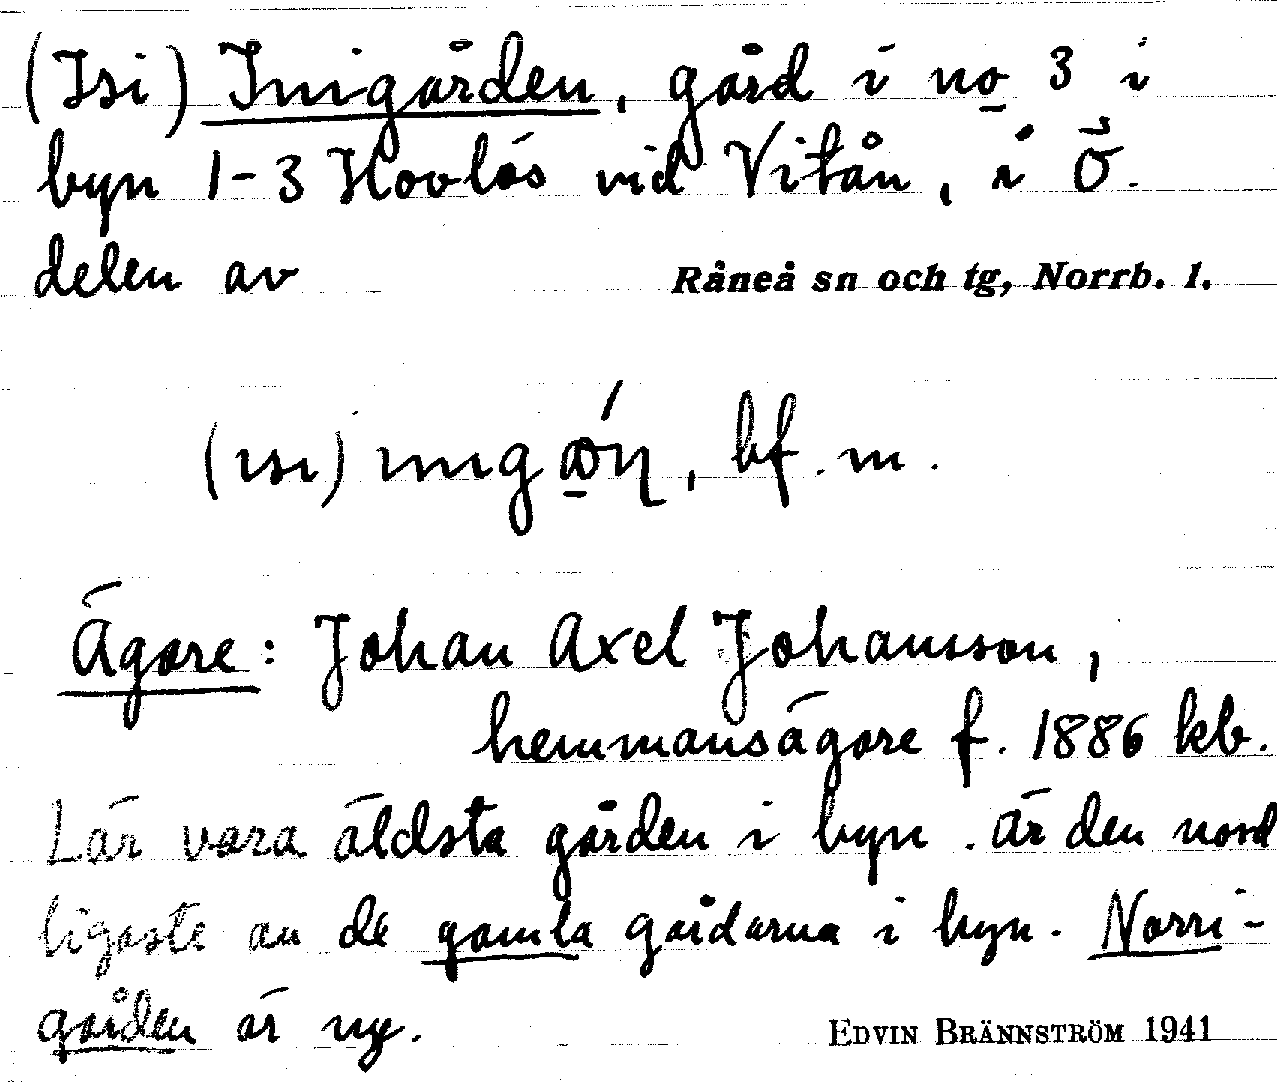 (Isi) Inigården, gård i no 3 i
byn 1-3 Hovlös vid Vitån, i Ö.
delen av Råneå sn och tg, Norrb. l.
bf. m.
Ägare: Johan Axel Johansson,
hemmansägare f. 1886 kb.
Lär vara äldsta gården i byn. Är den nord
ligaste av de gamla gårdarna i byn. Norri-
gården är ny.
EDVIN BRÄNNSTRÖM 1941